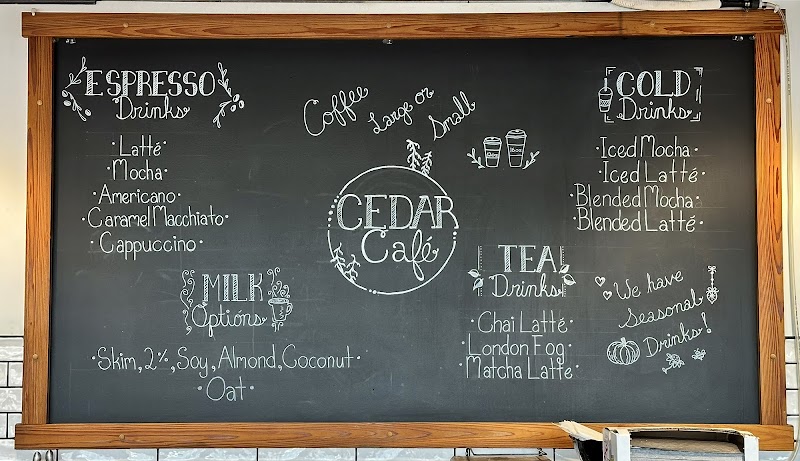 ESPRESSO
Drinks
·Latté·
·Mocha·
·Americano·
·Caramel Macchiato·
·Cappuccino·
Coffee
Large or
Small
CEDAR
Café
COLD
Drinks
·Iced Mocha·
·Iced Latté·
·Blended Mocha·
·Blended Latté·
MILK
Options
·Skim, 2%, Soy, Almond, Coconut·
·Oat·
TEA
Drinks
·Chai Latté·
·London Fog·
·Matcha Latte·
We have
Seasonal
Drinks!